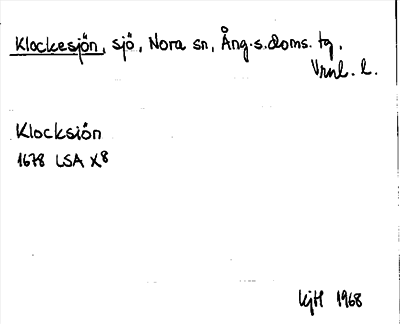 Klockesjön, sjö, Nora sn, Ång.s.doms. tg,
Vrnl. l.
Klocksiön
1678 LSA X8
KjH 1968